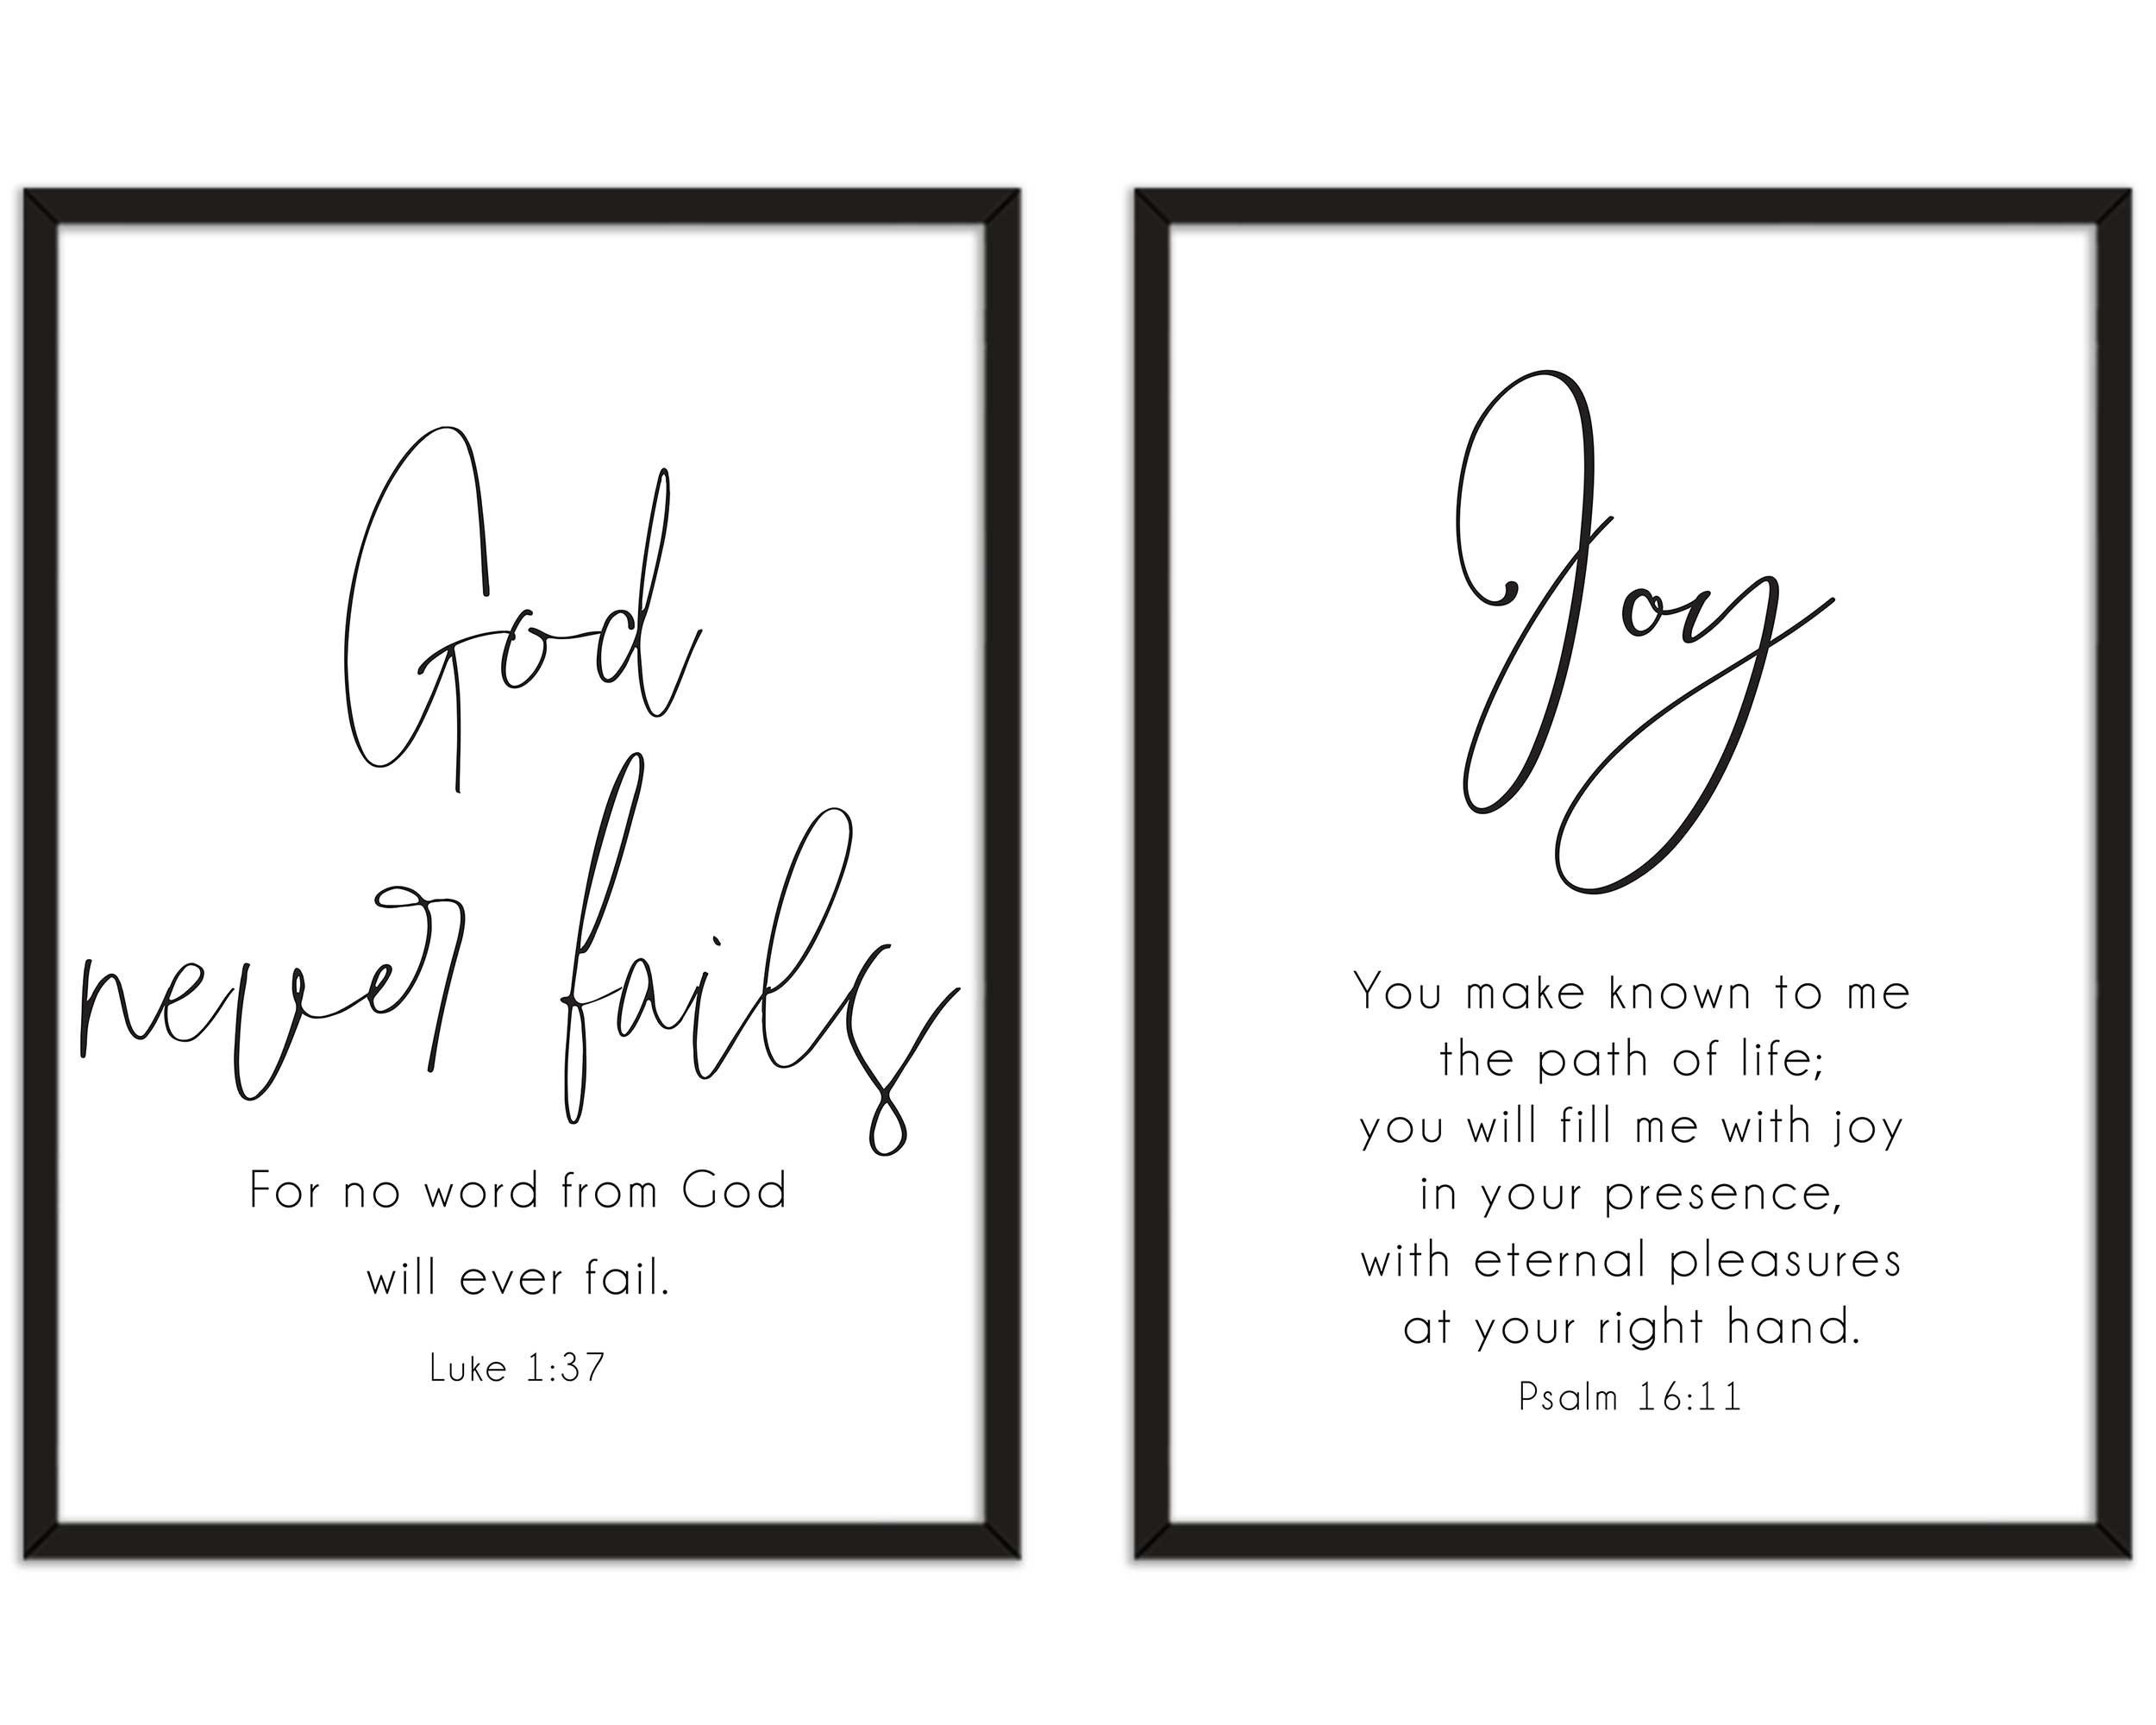 God
never fails
For no word from God
will ever fail.
Luke 1:37
Joy
You make known to me
the path of life;
you will fill me with joy
in your presence,
with eternal pleasures
at your right hand.
Psalm 16:11